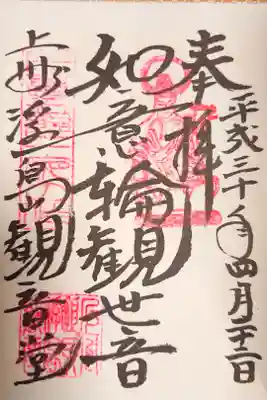 奉拝
平成三十年四月
如意輪観世音
上州浮島観音堂